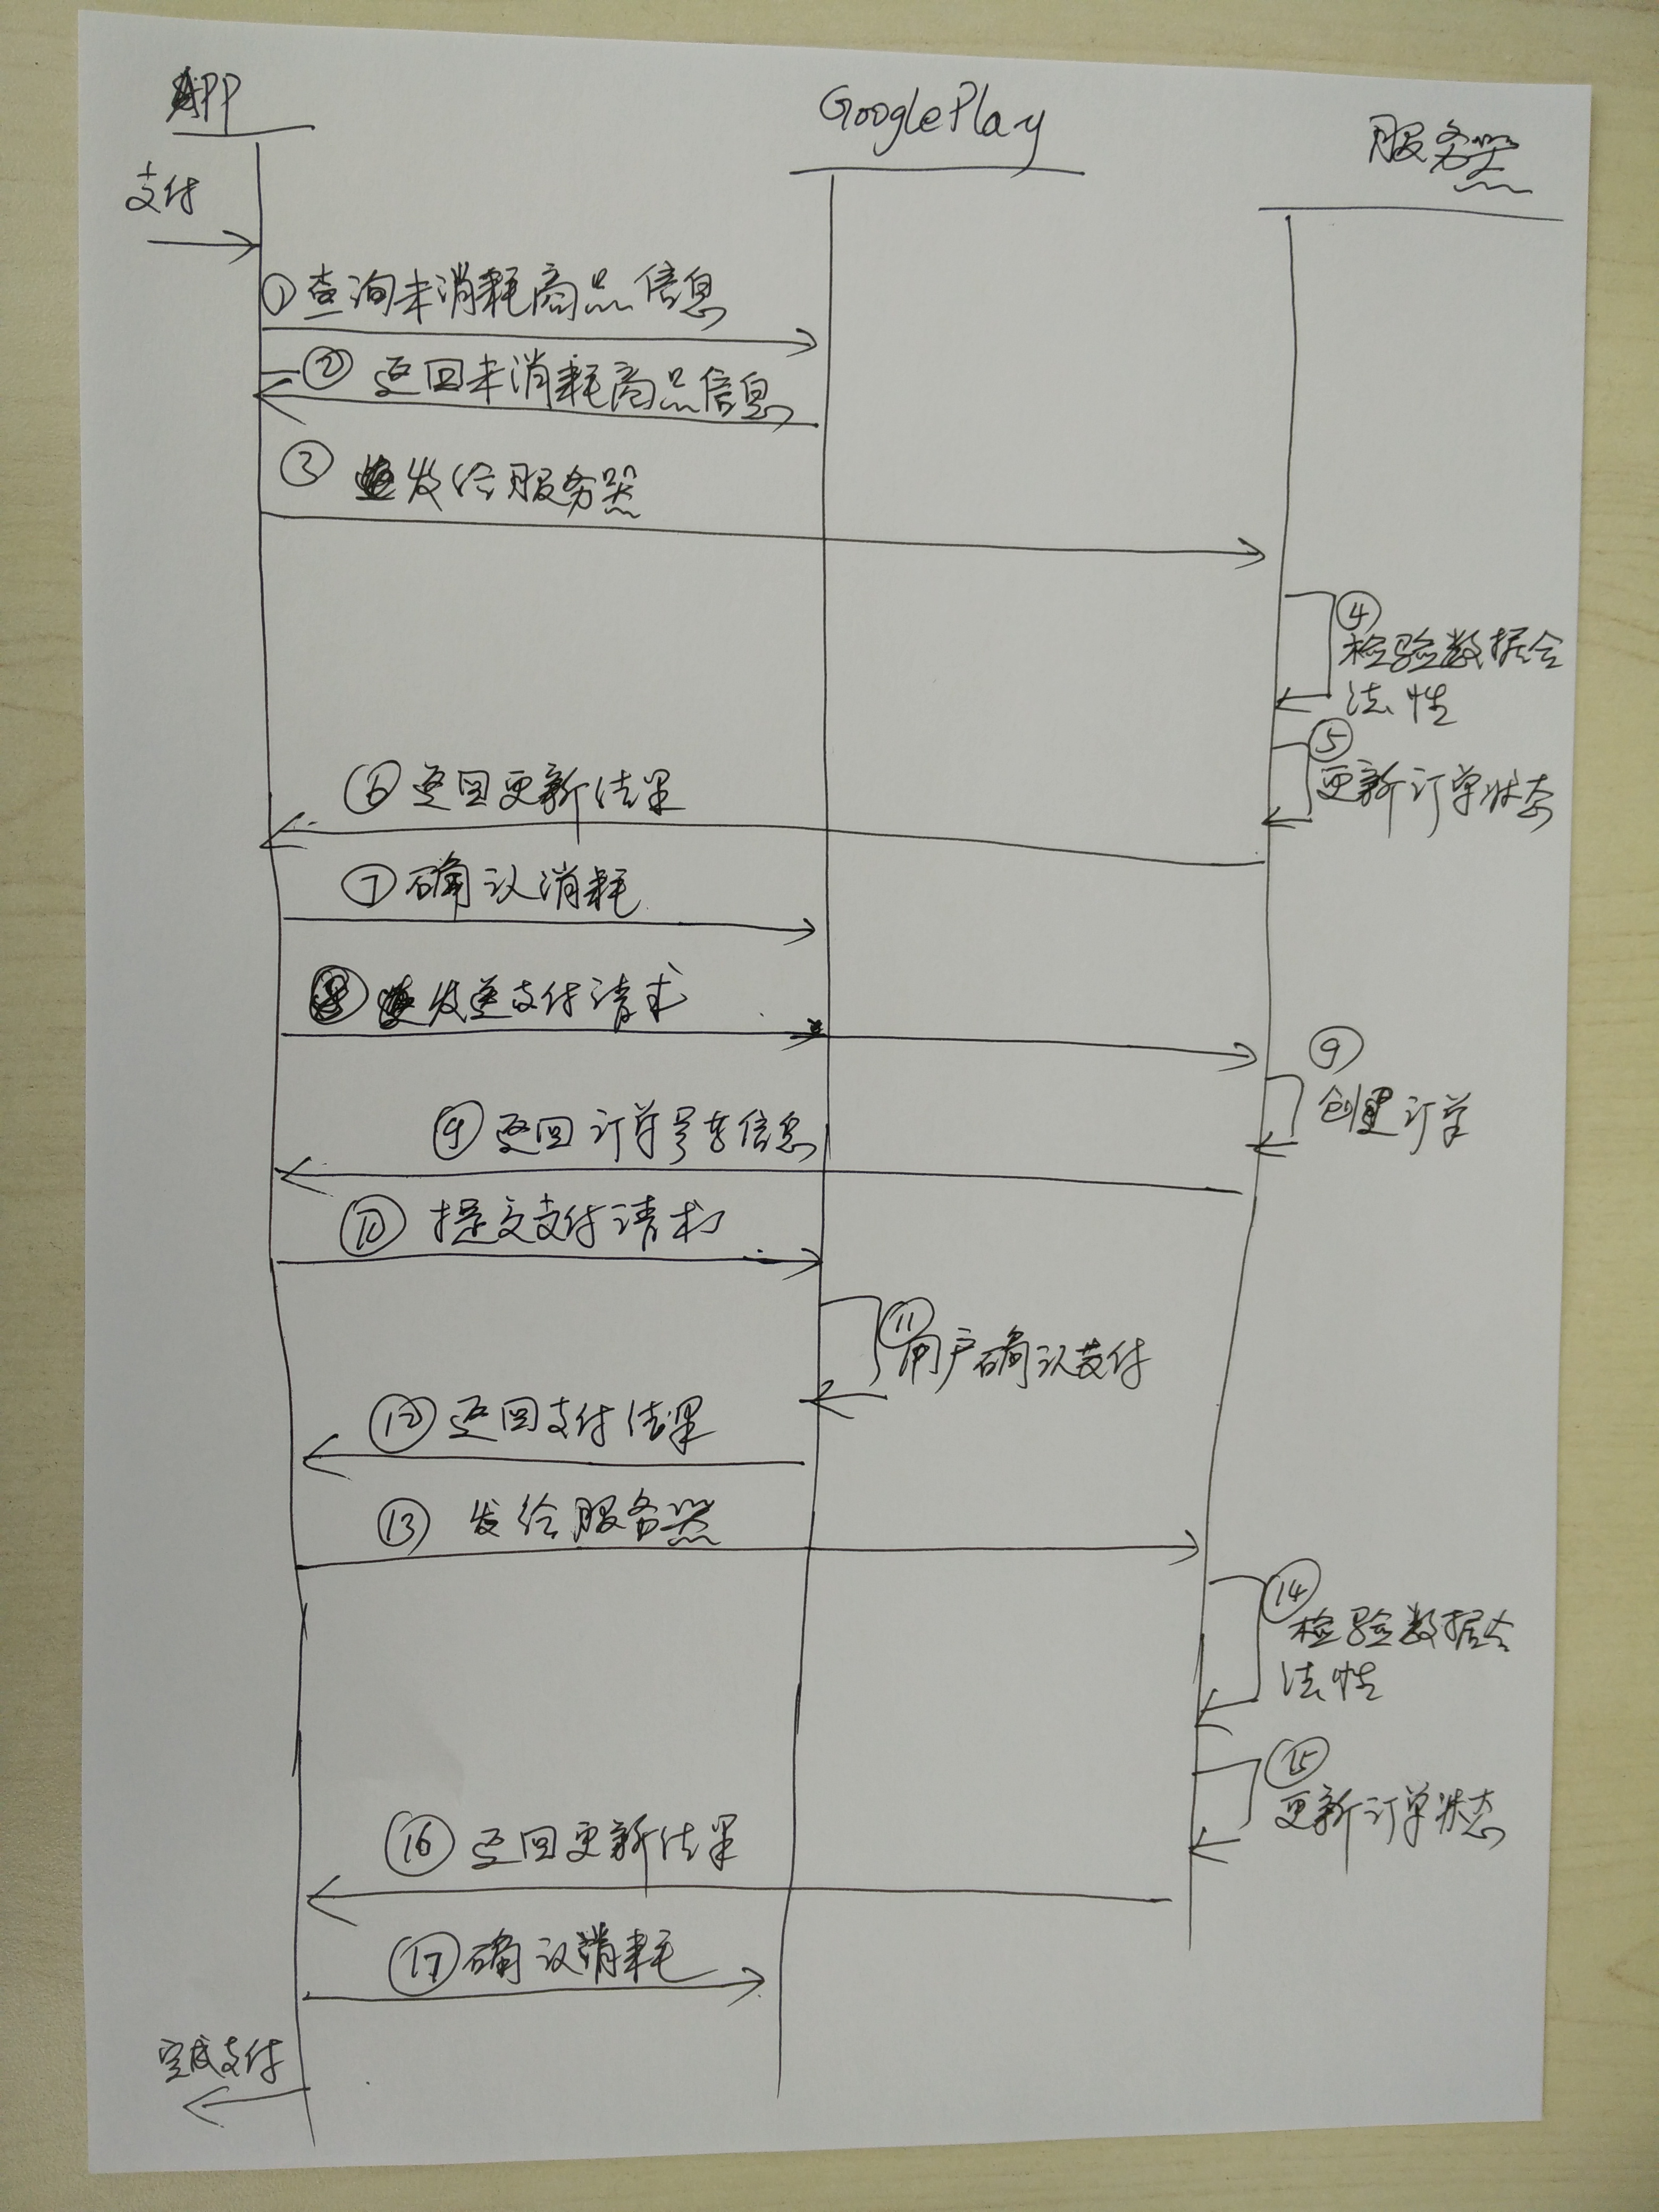 APP
GooglePlay
服务器
支付
①查询未消耗商品信息
② 返回未消耗商品信息
③ 发给服务器
④
检验数据合
法性
⑤
更新订单状态
⑥ 返回更新结果
⑦ 确认消耗
⑧ 发送支付请求
⑨
创建订单
⑨ 返回订单号等信息
⑩ 提交支付请求
⑪
用户确认支付
⑫ 返回支付结果
⑬ 发给服务器
⑭
检验数据合
法性
⑮
更新订单状态
⑯ 返回更新结果
⑰ 确认消耗
完成支付